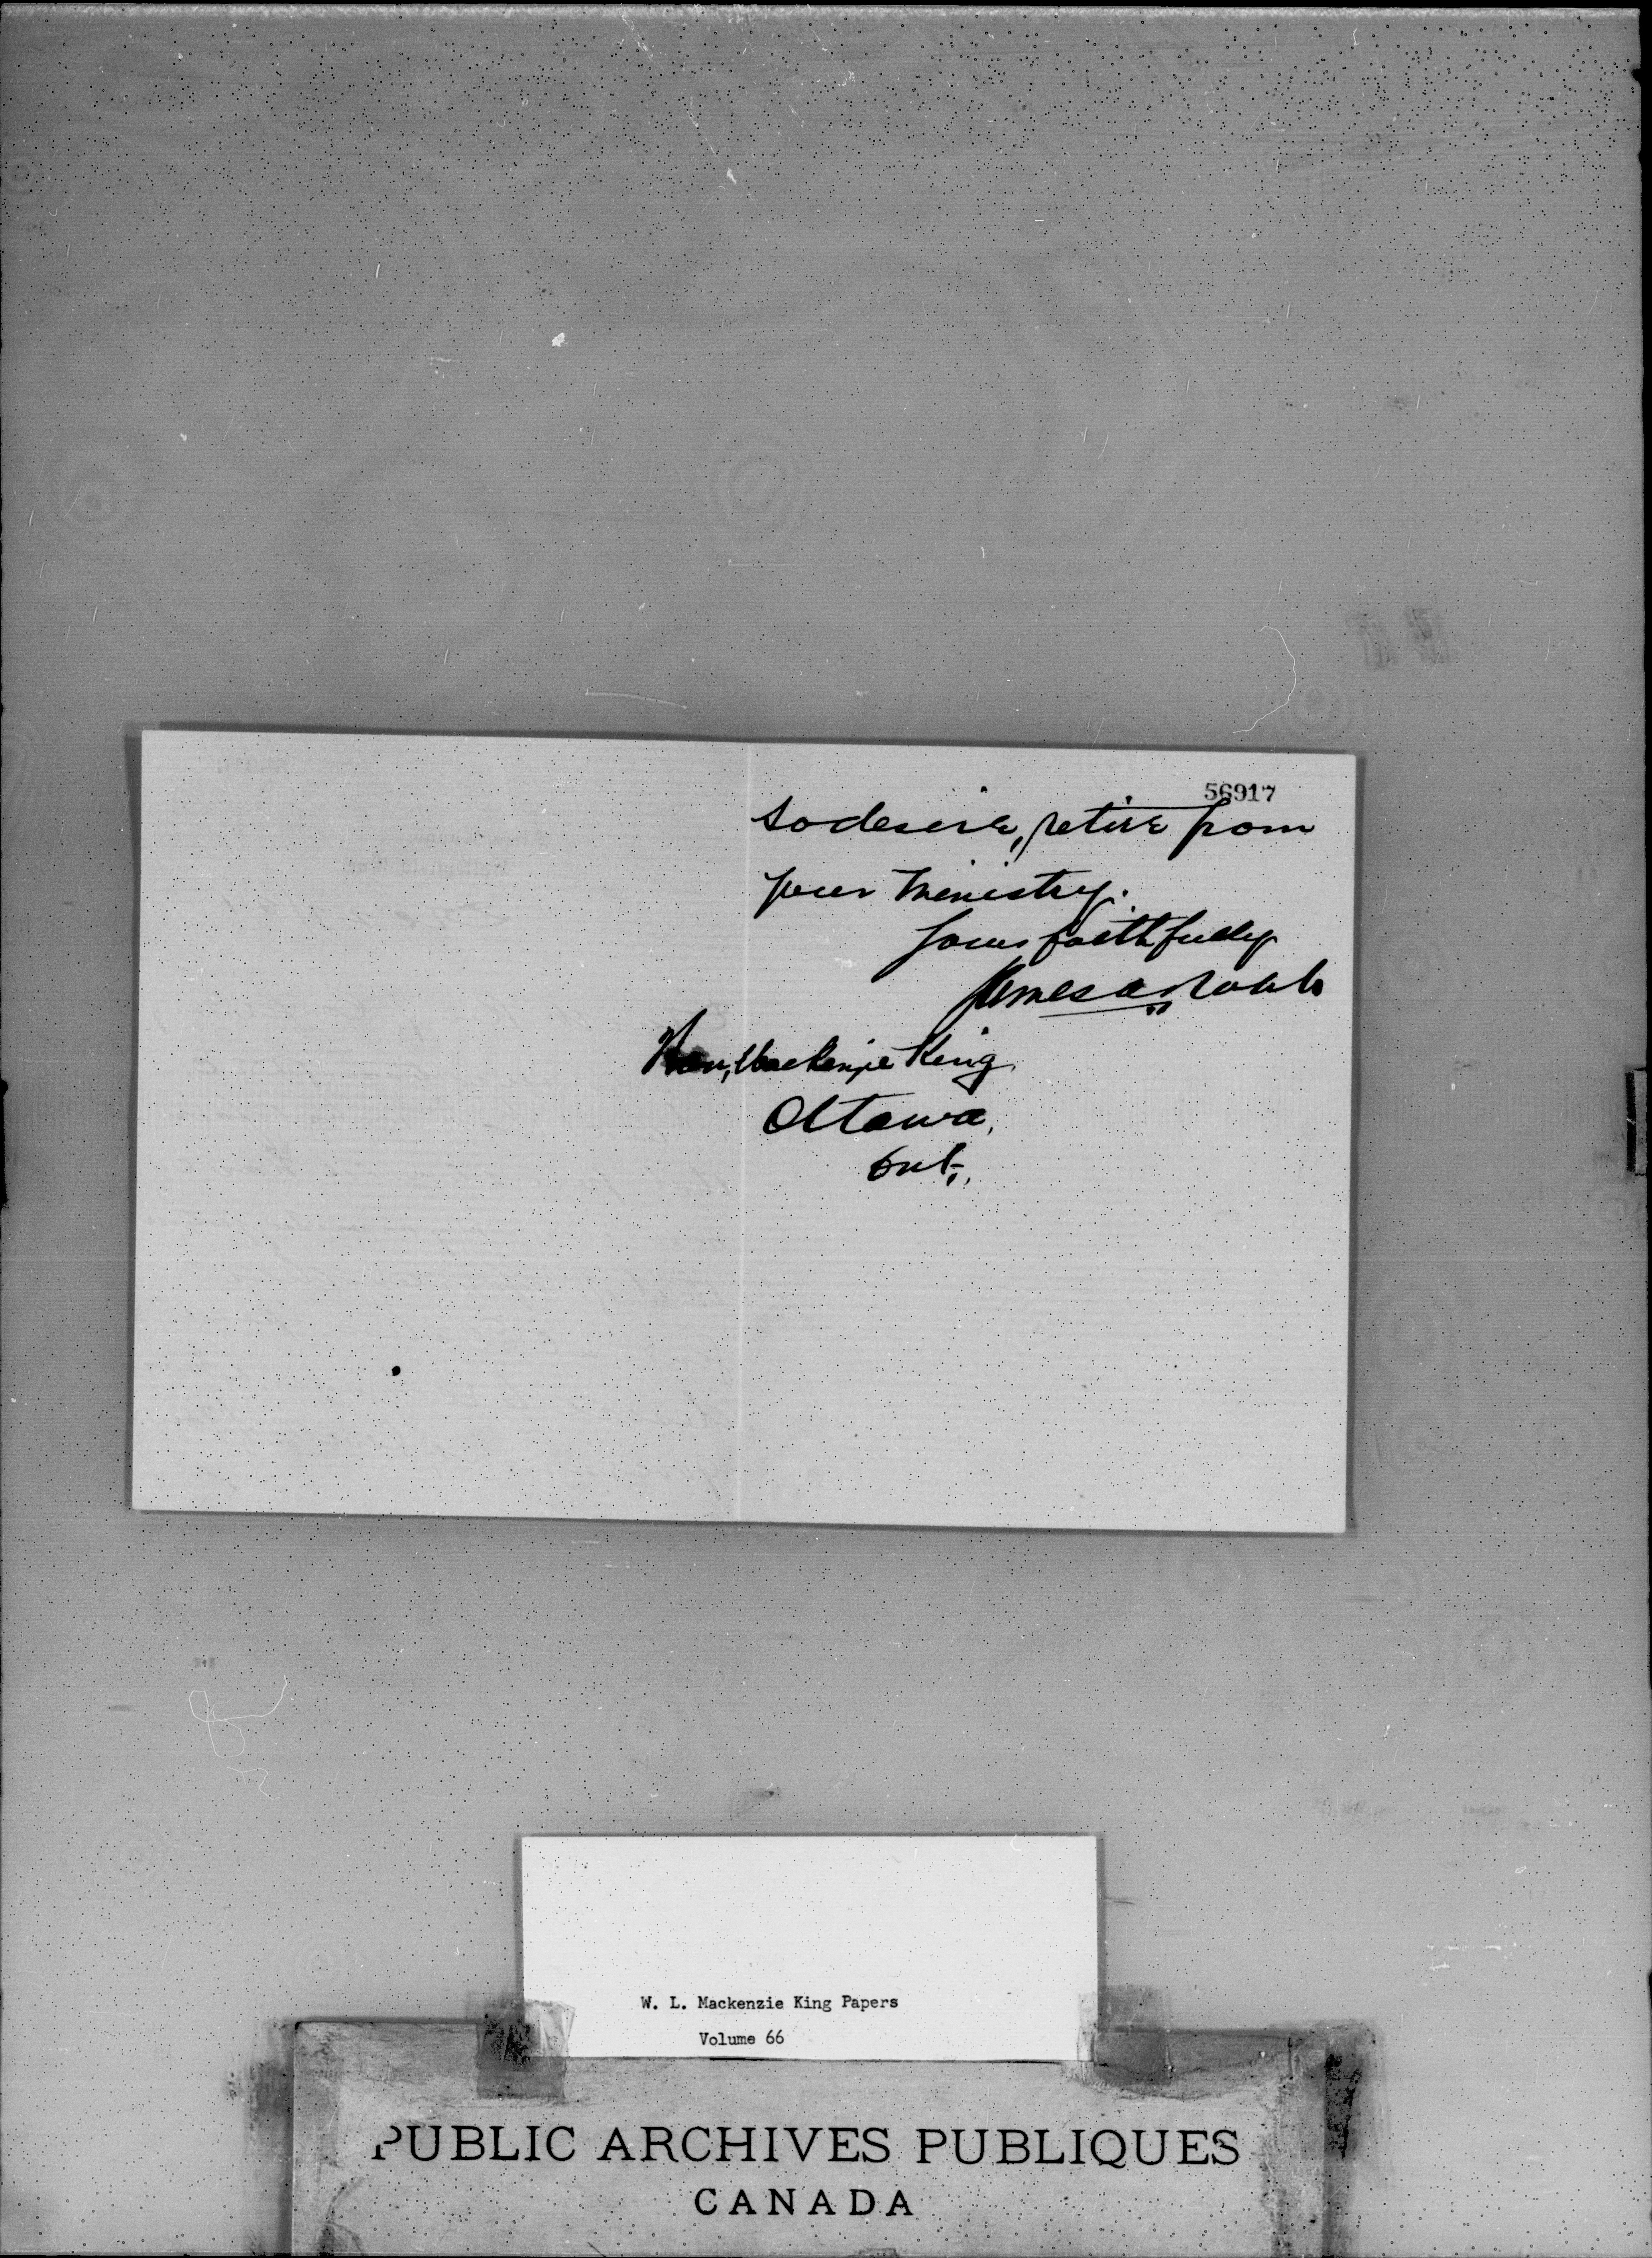 56917
so desire, retire from
your ministry.
Yours faithfully
James A Robb
Hon, Mackenzie King,
Ottawa,
Ont.,
W. L. Mackenzie King Papers
Volume 66
PUBLIC ARCHIVES PUBLIQUES
CANADA